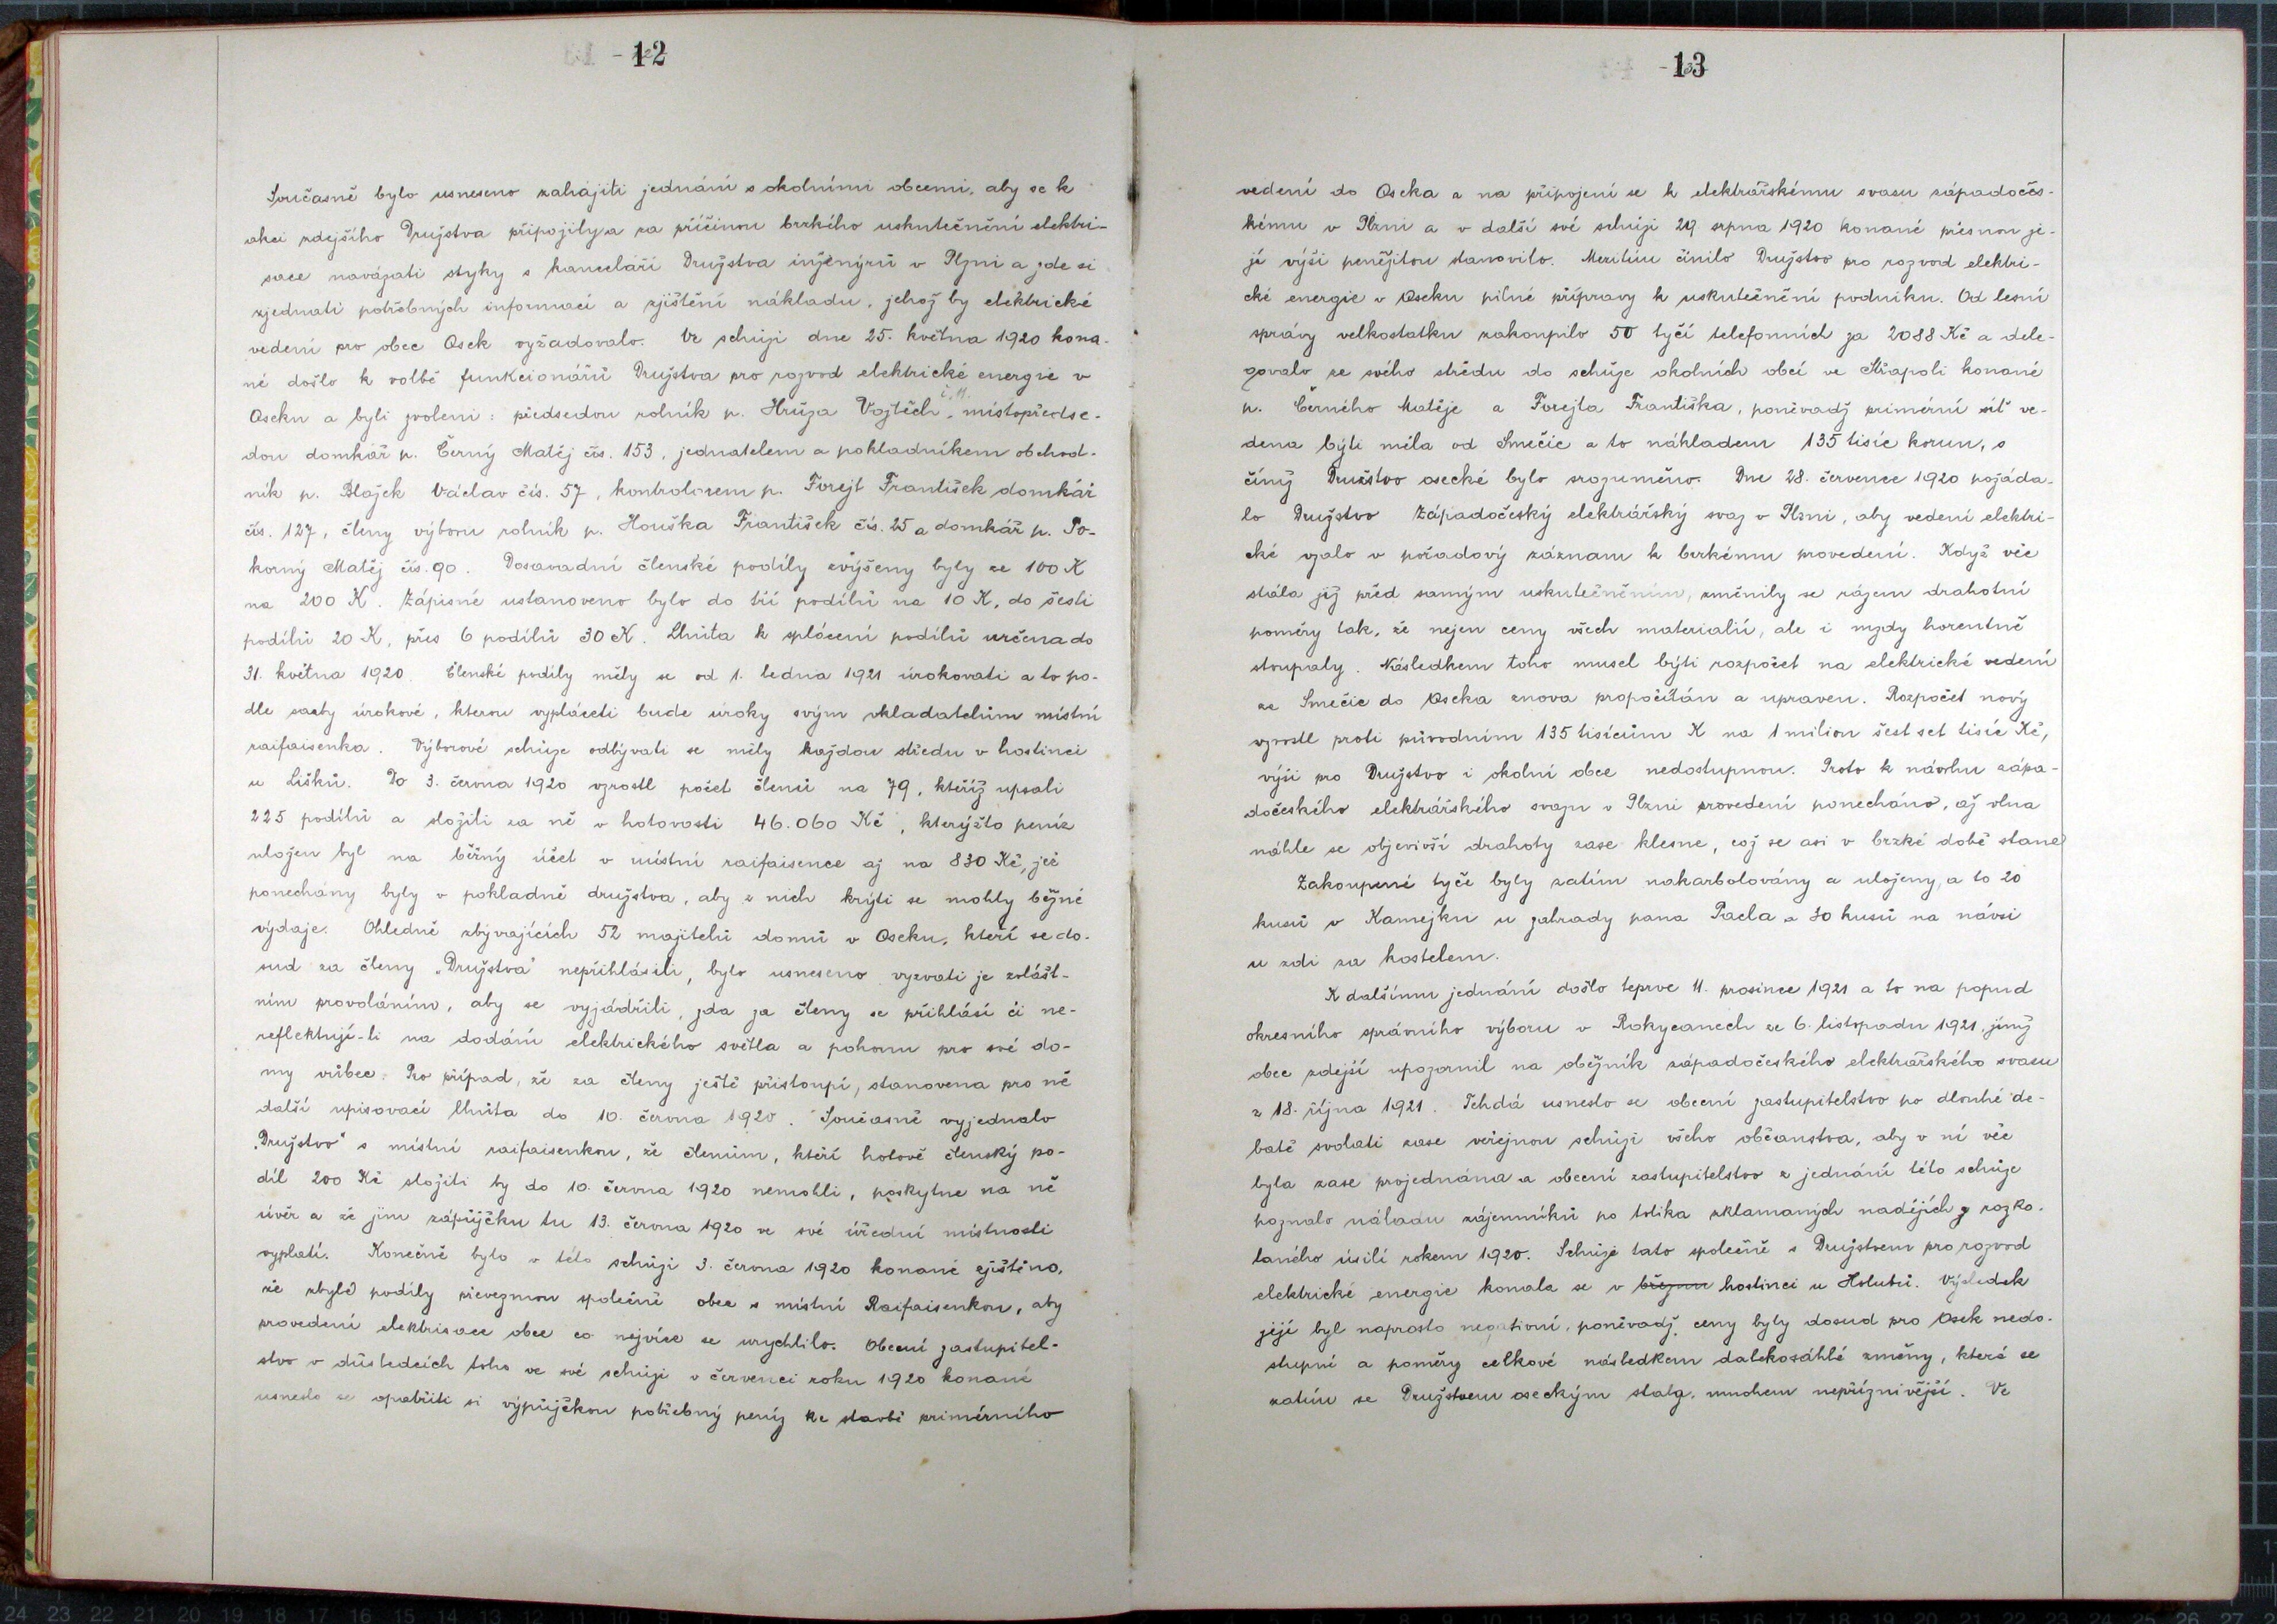 - 12
Současně bylo usneseno zahájiti jednání s okolními obcemi, aby se k
akci zdejšího Družstva připojily a za příčinou brzkého uskutečnění elektri-
sace navázati styky s kanceláří Družstva inženýrů v Plzni a zde si
zjednati potřebných informací a zjištění nákladu, jehož by elektrické
vedení pro obec Osek vyžadovalo. Ve schůzi dne 25. května 1920 kona-
né došlo k volbě funkcionářů Družstva pro rozvod elektrické energie v
Oseku a byli zvoleni: předsedou rolník p. Hrůza Vojtěch č. 11., místopředse-
dou domkář p. Černý Matěj čís. 153, jednatelem a pokladníkem obchod-
ník p. Blažek Václav čís. 57, kontrolorem p. Forejt František domkář
čís. 127, členy výboru rolník p. Houška František čís. 25 a domkář p. Po-
korný Matěj čís. 90. Dosavadní členské podíly zvýšeny byly ze 100 K
na 200 K. Zápisné ustanoveno bylo do tří podílů na 10 K, do šesti
podílů 20 K, přes 6 podílů 30 K. Lhůta k splácení podílů určena do
31. května 1920. Členské podíly měly se od 1. ledna 1921 úrokovati a to po-
dle sazby úrokové, kterou vypláceti bude úroky svým vkladatelům místní
raifaisenka. Výborové schůze odbývati se měly každou středu v hostinci
u Lišků. Do 3. června 1920 vzrostl počet členů na 79, kteříž upsali
225 podílů a složili za ně v hotovosti 46.060 Kč, kterýžto peníz
uložen byl na běžný účet v místní raifaisence až na 830 Kč, jež
ponechány byly v pokladně družstva, aby z nich krýti se mohly běžné
výdaje. Ohledně zbývajících 52 majitelů domů v Oseku, kteří se do-
sud za členy „Družstva" nepřihlásili, bylo usneseno vyzvati je zvlášt-
ním provoláním, aby se vyjádřili, zda za členy se přihlásí či ne-
reflektují-li na dodání elektrického světla a pohonu pro své do-
my vůbec. Pro případ, že za členy ještě přistoupí, stanovena pro ně
další upisovací lhůta do 10. června 1920. Současně vyjednalo
„Družstvo" s místní raifaisenkou, že členům, kteří hotově členský po-
díl 200 Kč složiti by do 10. června 1920 nemohli, poskytne na ně
úvěr a že jim zápůjčku tu 13. června 1920 ve své úřední místnosti
vyplatí. Konečně bylo v této schůzi 3. června 1920 konané zjištěno,
že zbylé podíly převezmou společně obec s místní Raifaisenkou, aby
provedení elektrisace obce co nejvíce se urychlilo. Obecní zastupitel-
stvo v důsledcích toho ve své schůzi v červenci roku 1920 konané
usneslo se opatřiti si výpůjčkou potřebný peníz ke stavbě primérního
- 13
vedení do Oseka a na připojení se k elektrářskému svazu západočes-
kému v Plzni a v další své schůzi 29 srpna 1920 konané přesnou je-
jí výši peněžitou stanovilo. Meritim činilo Družstvo pro rozvod elektri-
cké energie v Oseku pilné přípravy k uskutečnění podniku. Od lesní
správy velkostatku zakoupilo 50 tyčí telefonních za 2088 Kč a dele-
govalo ze svého středu do schůze okolních obcí ve Střapoli konané
p. Černého Matěje a Forejta Františka, poněvadž primérní síť ve-
dena býti měla od Smečic a to nákladem 135 tisíc korun, s
čímž Družstvo osecké bylo srozuměno. Dne 28. července 1920 požáda-
lo Družstvo Západočeský elektrářský svaz v Plzni, aby vedení elektri-
cké vzalo v pořadový záznam k brzkému provedení. Když věc
stála již před samým uskutečněním, změnily se rázem drahotní
poměry tak, že nejen ceny všech materialií, ale i mzdy horentně
stoupaly. Následkem toho musel býti rozpočet na elektrické vedení
ze Smečic do Oseka znova propočítán a upraven. Rozpočet nový
vzrostl proti původním 135 tisícům K na 1 milion šest set tisíc Kč,
výši pro Družstvo i okolní obce nedostupnou. Proto k návrhu zápa-
dočeského elektrářského svazu v Plzni provedení ponecháno, až vlna
náhle se objevivší drahoty zase klesne, což se asi v brzké době stane
Zakoupené tyče byly zatím nakarbolovány a uloženy, a to 20
kusů v Kamejku u zahrady pana Pacla a 30 kusů na návsi
u zdi za kostelem.
K dalšímu jednání došlo teprve 11. prosince 1921 a to na popud
okresního správního výboru v Rokycanech ze 6. listopadu 1921, jímž
obec zdejší upozornil na oběžník západočeského elektrářského svazu
z 18. října 1921. Tehdá usneslo se obecní zastupitelstvo po dlouhé de-
batě svolati zase veřejnou schůzi všeho občanstva, aby v ní věc
byla zase projednána a obecní zastupitelstvo z jednání této schůze
poznalo náladu zájemníků po tolika zklamaných nadějích z rozko-
taného úsilí rokem 1920. Schůze tato společně s Družstvem pro rozvod
elektrické energie konala se v březnu hostinci u Holubů. Výsledek
její byl naprosto negativní, poněvadž ceny byly dosud pro Osek nedo-
stupní a poměry celkové následkem dalekosáhlé změny, které se
zatím se Družstvem oseckým staly, mnohem nepříznivější. Ve